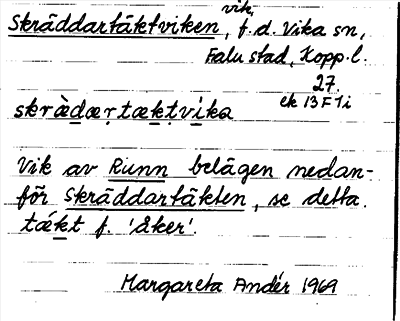 vik,
Skräddartäktviken, f.d. Vika sn,
Falu stad, Kopp.l.
27.
ek 13F1i
skrὰdærtæktvíka
Vik av Runn belägen nedan-
för Skräddartäkten, se detta.
tǽkt f. 'åker'.
Margareta Andér 1969